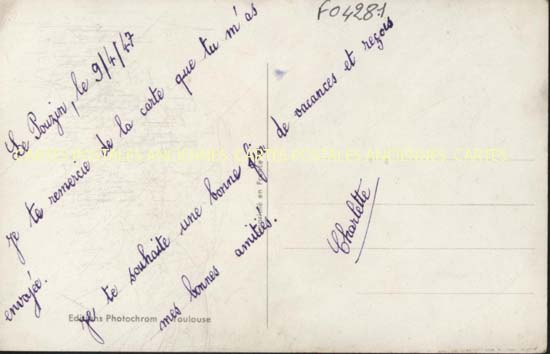 F04281
Le Pouzin, le 9/4/47
Je te remercie de la carte que tu m'as
envoyée.
Je te souhaite une bonne fin de vacances et reçois
mes bonnes amitiés.
Charlette
CARTES POSTALES ANCIENNES CARTES POSTALES ANCIENNES CARTES
Editions Photochrom Toulouse